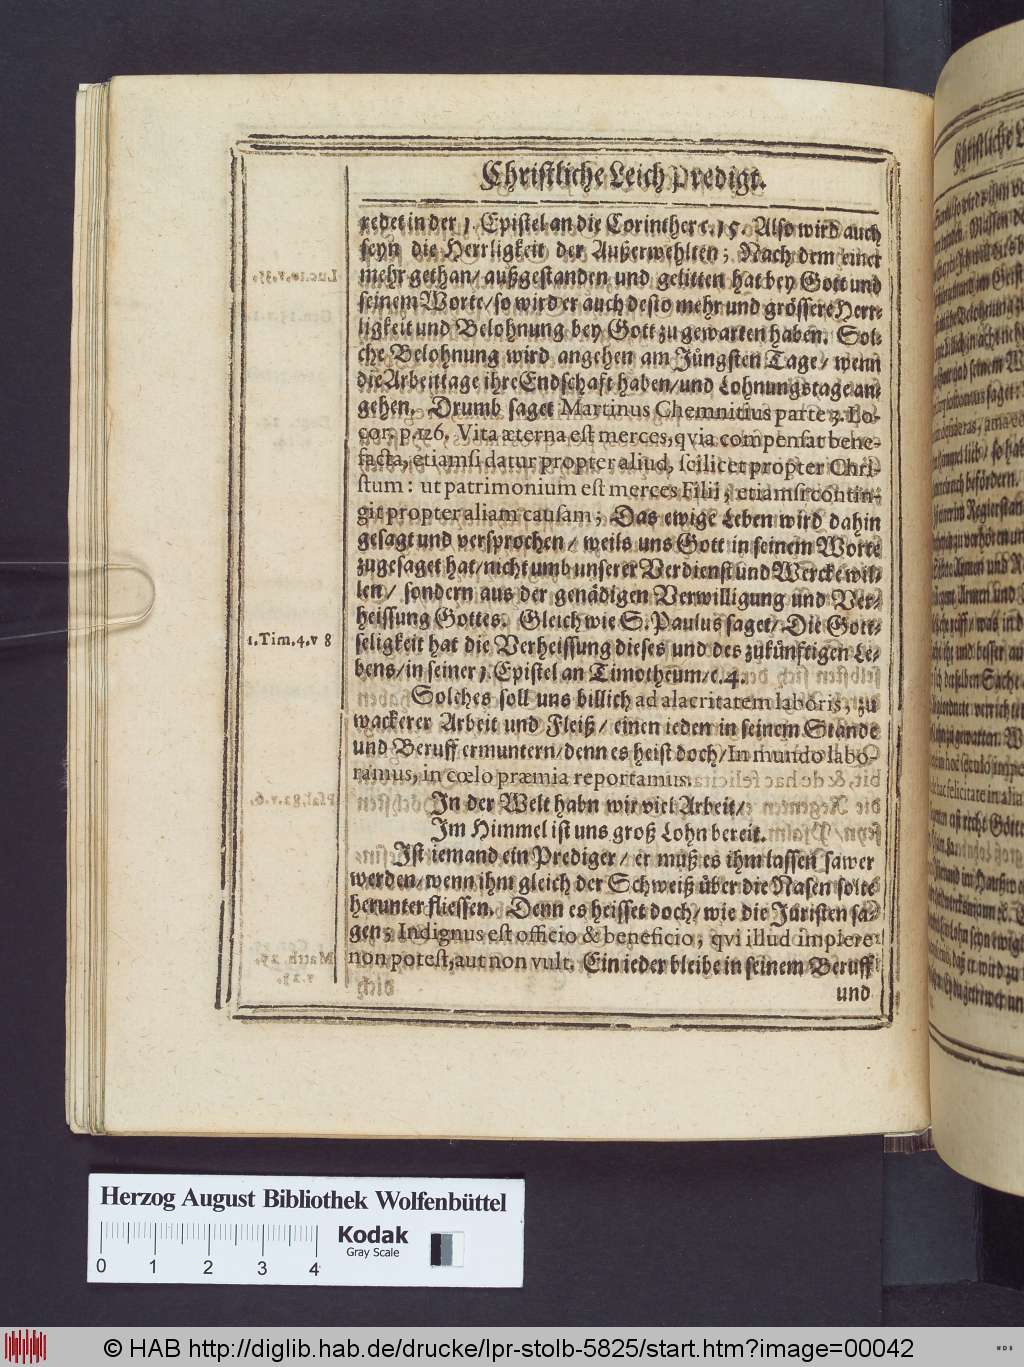 Christliche Leich Predigt.
redet in der 1. Epistel an die Corinther c. 15. Also wird auch
seyn die Herrligkeit der Außerwehlten; Nach dem einer
mehr gethan/ außgestanden und gelitten hat bey Gott und
seinem Worte/ so wird er auch desto mehr und grössere Herr-
ligkeit und Belohnung bey Gott zu gewarten haben. Sol-
che Belohnung wird angehen am Jüngsten Tage/ wenn
die Arbeittage ihre Endschafft haben/ und Lohnungstage an-
gehen. Drumb saget Martinus Chemnitius parte 3. Lo-
cor. p. 126. Vita æterna est merces, qvia compensat bene-
facta, etiamsi datur propter aliud, scilicet propter Chri-
stum: ut patrimonium est merces Filii, etiamsi contin-
git propter aliam causam; Das ewige Leben wird dahin
gesagt und versprochen/ weils uns Gott in seinem Worte
zugesaget hat/ nicht umb unserer Verdienst und Wercke wil-
len/ sondern aus der genädigen Verwilligung und Ver-
heissung Gottes. Gleich wie S. Paulus saget/ Die Gott-
1. Tim. 4. v 8
seligkeit hat die Verheissung dieses und des zukünftigen Le-
bens/ in seiner 1. Epistel an Timotheum/ c. 4.
Solches soll uns billich ad alacritatem laboris, zu
wackerer Arbeit und Fleiß/ einen ieden in seinem Stande
und Beruff ermuntern/ denn es heist doch/ In mundo labo-
ramus, in cœlo præmia reportamus.
In der Welt habn wir viel Arbeit/
Im Himmel ist uns groß Lohn bereit.
Ist iemand ein Prediger/ er muß es ihm lassen sawer
werden/ wenn ihm gleich der Schweiß über die Nasen solte
herunter fliessen. Denn es heisset doch/ wie die Juristen sa-
gen; Indignus est officio & beneficio, qvi illud implere
non potest, aut non vult. Ein ieder bleibe in seinem Beruff
und
Herzog August Bibliothek Wolfenbüttel
Kodak
Gray Scale
0 1 2 3 4
© HAB http://diglib.hab.de/drucke/lpr-stolb-5825/start.htm?image=00042